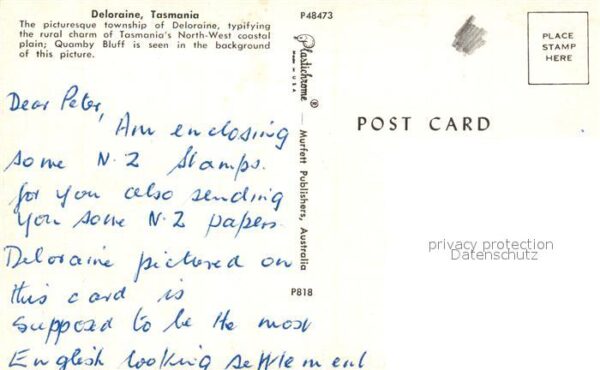 Deloraine, Tasmania
The picturesque township of Deloraine, typifying
the rural charm of Tasmania's North-West coastal
plain; Quamby Bluff is seen in the background
of this picture.
Dear Peter,
Am enclosing
some N.Z Stamps.
for you also sending
you some N.Z papers.
Deloraine pictured on
this card is
supposed to be the most
English looking settlement
P48473
Plastichrome ®
MADE IN U.S.A.
— Murfett Publishers, Australia
P818
PLACE
STAMP
HERE
POST CARD
privacy protection
Datenschutz